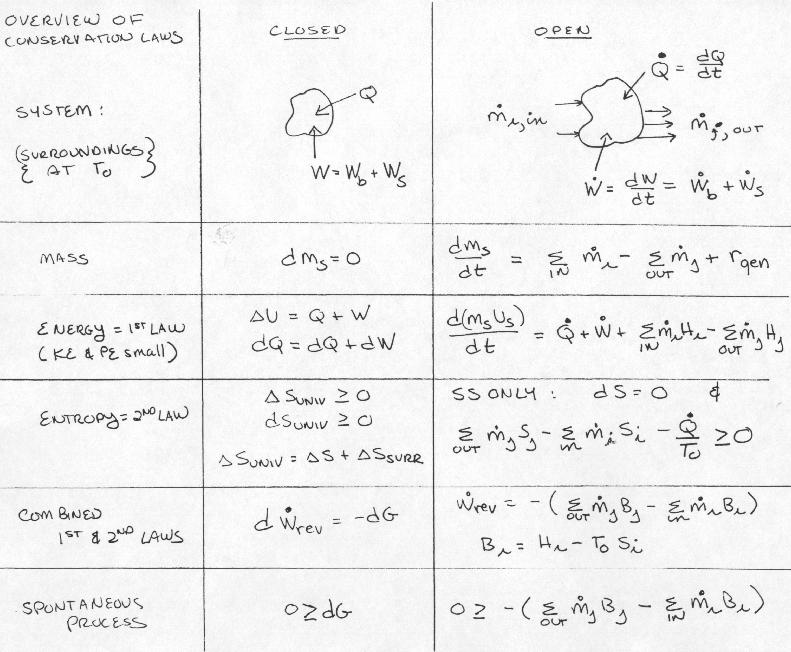 OVERVIEW OF
CONSERVATION LAWS
CLOSED
OPEN
SYSTEM:
{SURROUNDINGS
AT T₀}
Q
W = W_b + W_s
Q̇ = dQ/dt
ṁ_i,in
ṁ_j,out
Ẇ = dW/dt = Ẇ_b + Ẇ_s
MASS
dm_s = 0
dm_s/dt = Σ_IN ṁ_i - Σ_OUT ṁ_j + r_gen
ENERGY = 1ST LAW
(KE & PE small)
ΔU = Q + W
dQ = dQ + dW
d(m_s U_s)/dt = Q̇ + Ẇ + Σ_IN ṁ_i H_i - Σ_OUT ṁ_j H_j
ENTROPY = 2ND LAW
ΔS_UNIV ≥ 0
dS_UNIV ≥ 0
ΔS_UNIV = ΔS + ΔS_SURR
SS ONLY: dS = 0 &
Σ_OUT ṁ_j S_j - Σ_in ṁ_i S_i - Q̇/T₀ ≥ 0
COMBINED
1ST & 2ND LAWS
d Ẇ_rev = -dG
Ẇ_rev = -(Σ_OUT ṁ_j B_j - Σ_in ṁ_i B_i)
B_i = H_i - T₀ S_i
SPONTANEOUS
PROCESS
0 ≥ dG
0 ≥ -(Σ_OUT ṁ_j B_j - Σ_IN ṁ_i B_i)